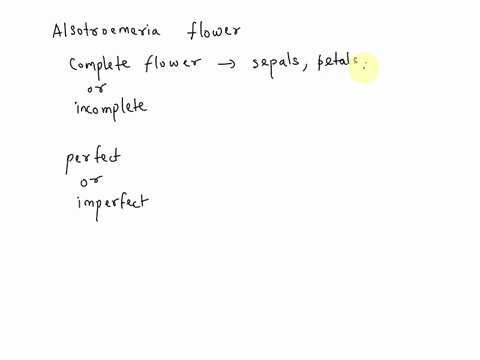 Alsotroemeria flower
Complete flower → sepals, petals.
or
incomplete
perfect
or
imperfect